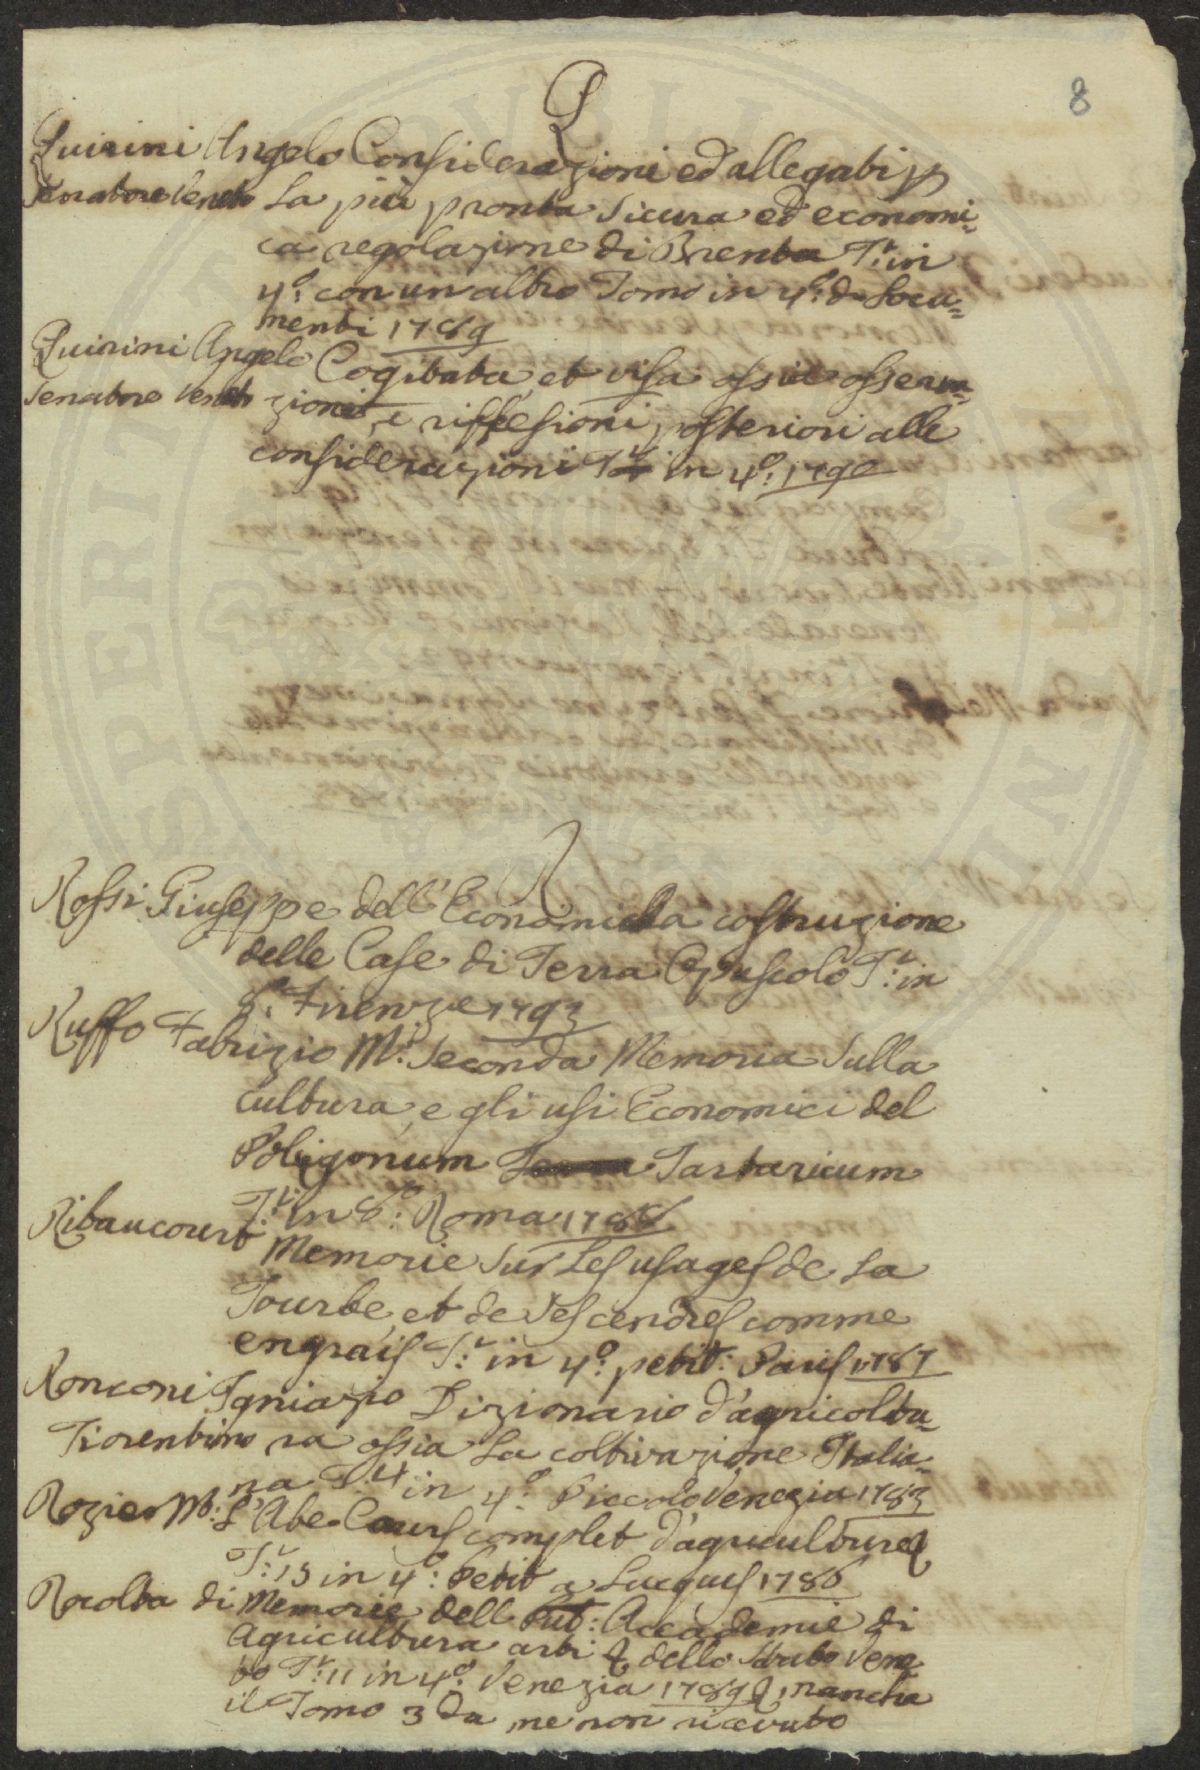 8
Q
Quirini Angelo Considerazioni ed allegati p
Senatore Veneto La più pronta sicura ed economi=
ca regolazione di Brenta T:i in
4.º: con un altro Tomo in 4.º: di Docu=
menti 1789
Quirini Angelo Cogitata et visa ossia osserva=
Senatore Veneto zioni, e riflessioni posteriori alle
considerazioni in 4.º: 1790
R
Rossi Giuseppe dell' Economica costruzione
delle Case di Terra Opuscolo T:i in
8.º: Firenze 1793
Ruffo Fabrizio M.r Seconda Memoria sulla
cultura, e gli usi Economici del
Poligonum Tartaricum
T:i in 8.º: Roma 1788
Ribaucourt Memorie sur Les usages de La
Tourbe, et de ses cendres comme
engrais T:i in 4.º: petit: Paris 1787
Ronconi Igniazio Dizionario d'agricoltu=
Fiorentino ra ossia La coltivazione Italia=
na T. 4 in 4.º Piccolo Venezia 1783
Rozier M: L'Abe Cours complet d'agriculture
T:i 13 in 4.º: Petit a Lucques 1786
Racolta di Memorie dell Pub: Accademie di
Agricultura arti dello Stato Vene=
to T:i 11 in 4.º: Venezia 1789 mancha
il Tomo 3 da me non ricevuto
SPERITVR